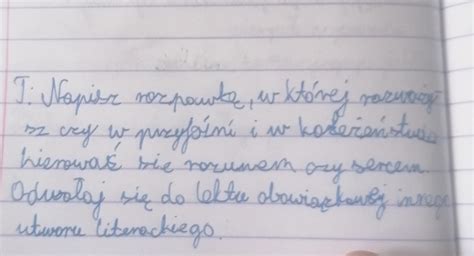 T: Napisz rozpawkę, w której rozważy
sz czy w przyjaźni i w koleżeństwie
kierować się rozumem czy sercem.
Odwołaj się do lektu obowiązkowej innego
utworu literackiego.